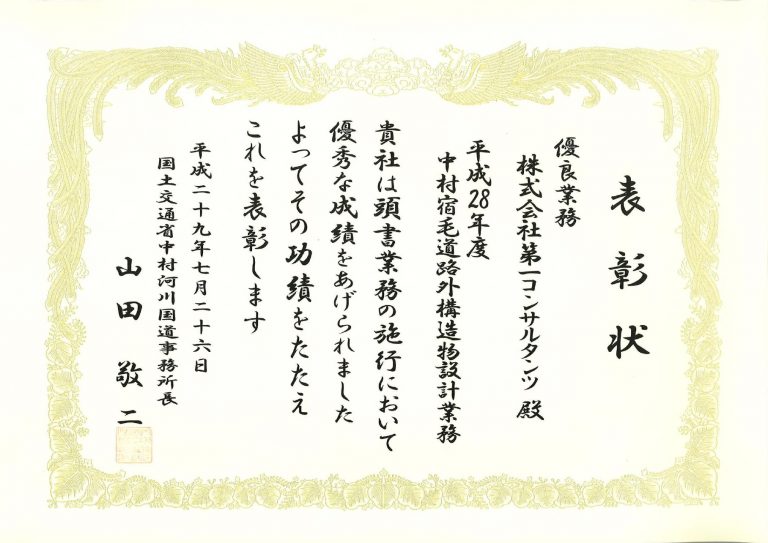 表彰状
優良業務
株式会社第一コンサルタンツ 殿
平成28年度
中村宿毛道路外構造物設計業務
貴社は頭書業務の施行において
優秀な成績をあげられました
よってその功績をたたえ
これを表彰します
平成二十九年七月二十六日
国土交通省中村河川国道事務所長
山田 敬二